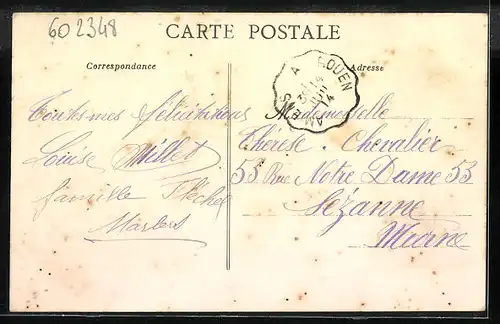 602348
CARTE POSTALE
Correspondance
Adresse
A ROUEN
Toutes mes félicitations
Louise Millet
famille
Mademoiselle
Thérèse Chevalier
53 Rue Notre Dame 53
Sézanne
Marne